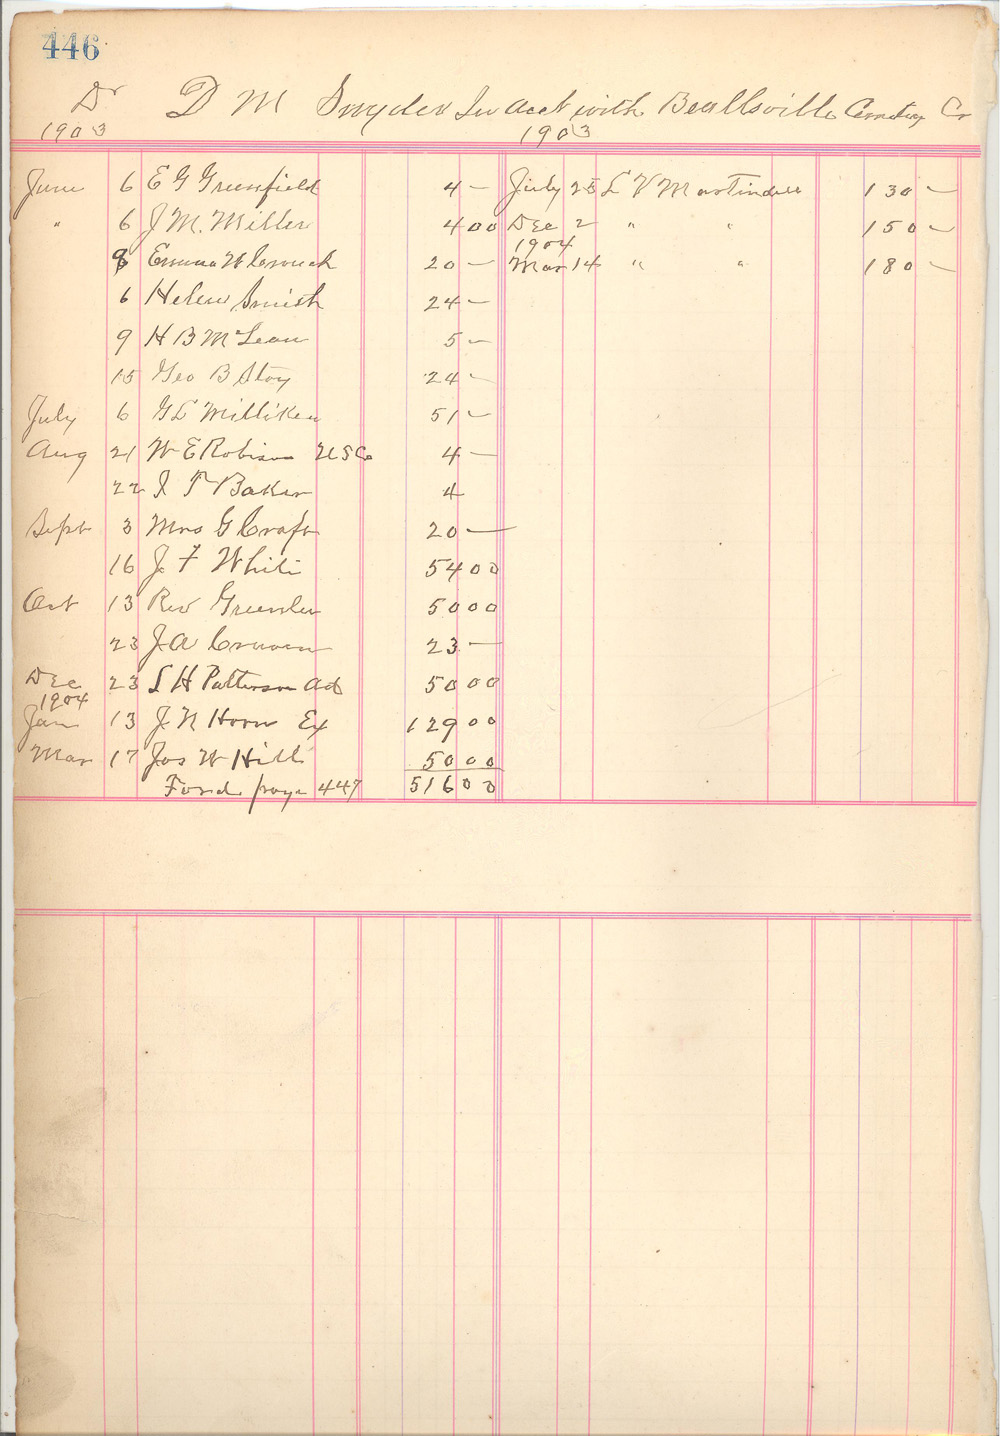 446
Dr D M Snyder In Acct with Beallsville Cemetery Cr
1903 1903
June 6 E G Greenfield 4 — July 25 L V Martindell 130 —
" 6 J M. Miller 4 00 Dec 2 " " 150 —
1904
8 Emma W 20 — Mar 14 " " 180 —
6 Helen Smith 24 —
9 H B McLean 5 —
15 Geo B Stoy 24 —
July 6 G L Milliken 51 —
Aug 21 W E Robison 4 —
22 J T Baker 4
Sept 3 Mrs G Craft 20 —
16 J F White 54 00
Oct 13 Rev 50 00
23 J A Craven 23 —
Dec 23 L H Patterson Ad 50 00
1904
Jan 13 J N Horn Ex 129 00
Mar 17 Jos W Hill 50 00
Forwd page 447 516 00